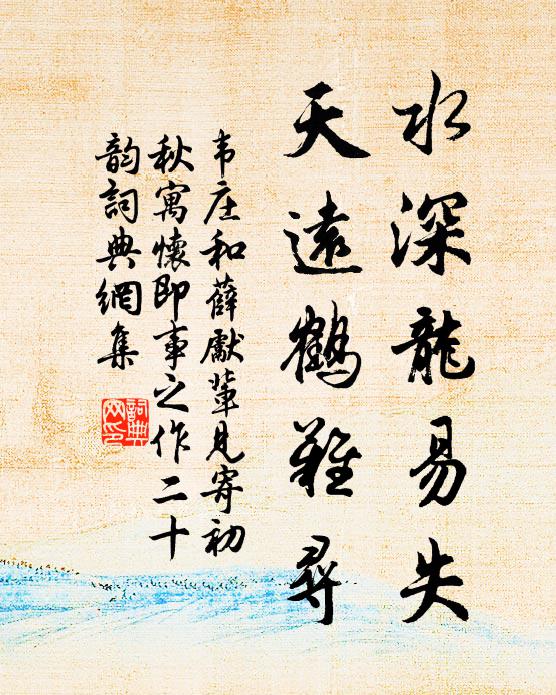 水深龍易失
天遠鶴難尋
韦庄和薛獻輩見寄初
秋寓懷即事之作二十
韵詞典網集
詞典
网印